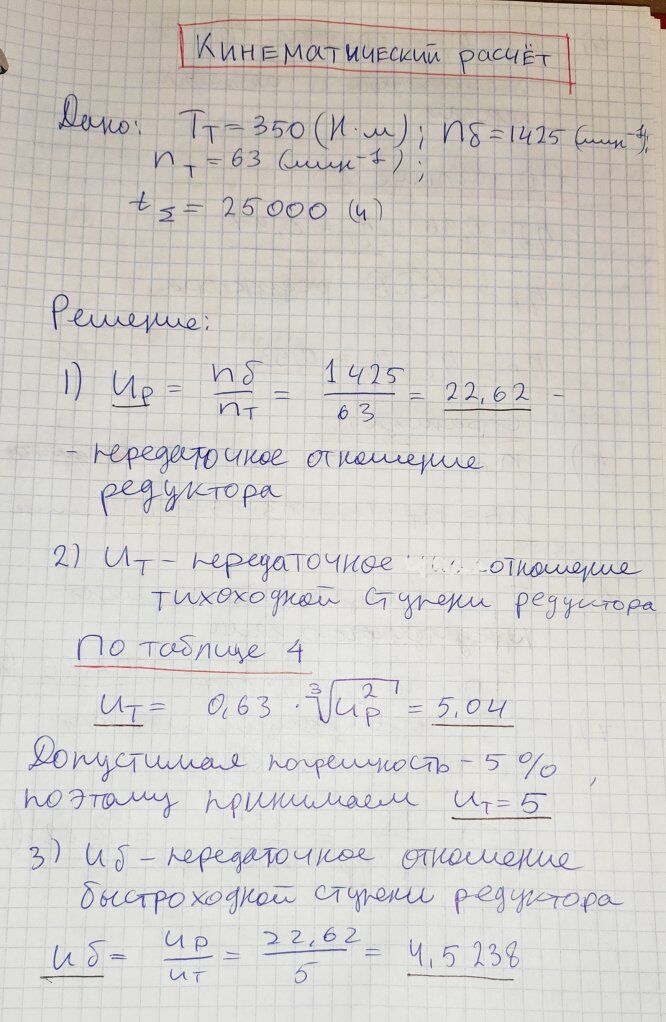 Кинематический расчёт
Дано: Tт = 350 (Н·м); nб = 1425 (мин⁻¹);
nт = 63 (мин⁻¹);
tΣ = 25000 (ч)
Решение:
1) Uр = nб/nт = 1425/63 = 22,62 -
- передаточное отношение
редуктора
2) Uт - передаточное отношение
тихоходной ступени редуктора
По таблице 4
Uт = 0,63 · ∛(Uр²) = 5,04
Допустимая погрешность - 5%,
поэтому принимаем Uт = 5
3) Uб - передаточное отношение
быстроходной ступени редуктора
Uб = Uр/Uт = 22,62/5 = 4,5238